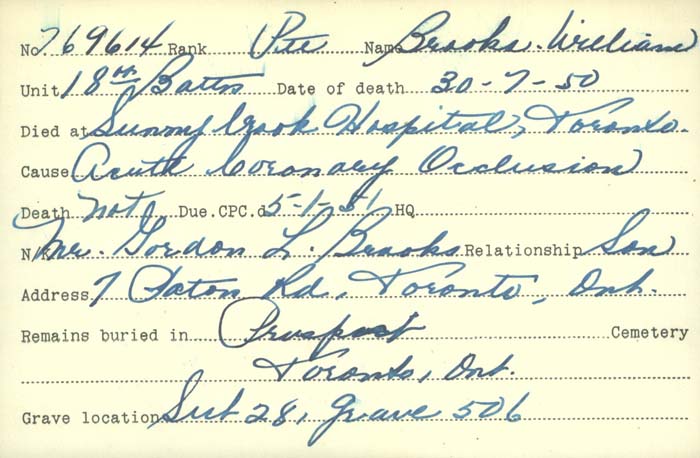 No 769614 Rank Pte Name Brooks. William
Unit 18th Battn Date of death 30-7-50
Died at Sunnybrook Hospital, Toronto.
Cause Acute Coronary Occlusion
Death not Due.CPC.d 5-1-51 HQ
N/K Mr. Gordon L. Brooks Relationship Son
Address 7 Paton Rd, Toronto, Ont.
Remains buried in Prospect Cemetery
Toronto, Ont.
Grave location Sect 28, Grave 506